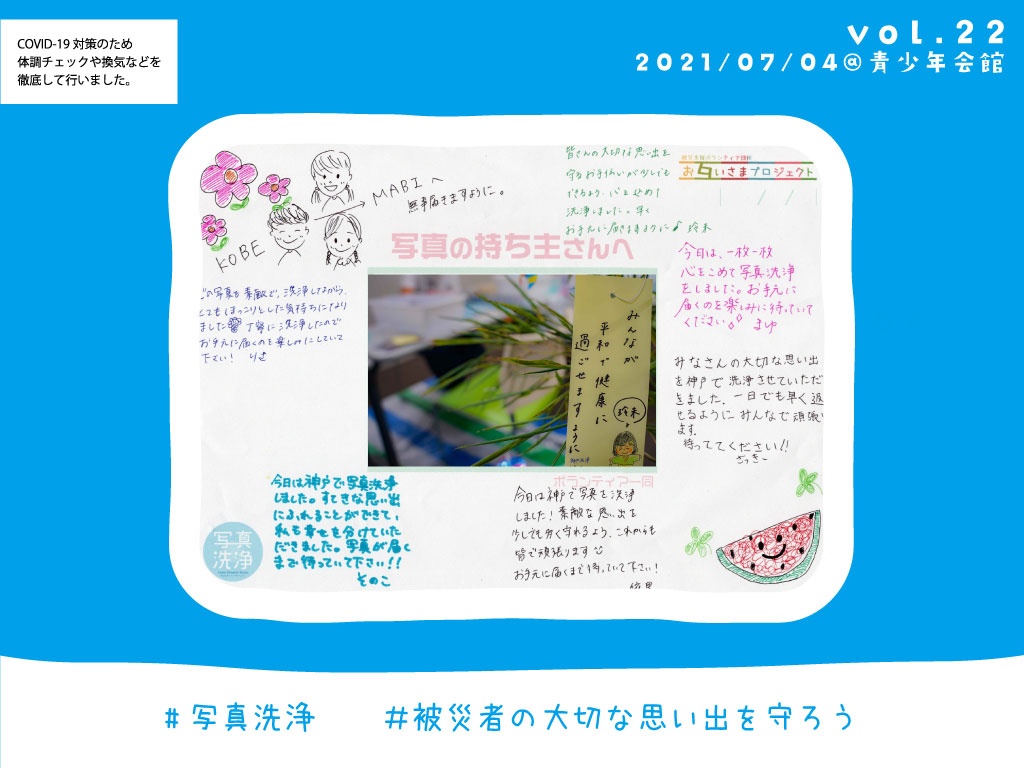 COVID-19 対策のため
体調チェックや換気などを
徹底して行いました。
vol.22
2021/07/04@青少年会館
KOBE
MABIへ
無事届きますように。
皆さんの大切な思い出を
守るお手伝いが少しでも
できるよう、心を込めて
洗浄しました。早く
お手元に届きますように♪ 玲未
被災支援ボランティア団体
おたがいさまプロジェクト
写真の持ち主さんへ
今日は、一枚一枚
心をこめて写真洗浄
をしました。お手元に
届くのを楽しみに待っていて
ください。 まゆ
どの写真も素敵で、洗浄しながら、
とてもほっこりとした気持ちになり
ました 丁寧に洗浄したので
お手元に届くのを楽しみにしていて
下さい!
みんなが
平和で健康に
過ごせますように
玲未
みなさんの大切な思い出
を神戸で洗浄させていただ
きました。一日でも早く返
せるようにみんなで頑張り
ます。
待っててください!!
さっきー
ボランティア一同
今日は神戸で写真洗浄
しました。すてきな思い出
にふれることができて、
私も幸せを分けていた
だきました。写真が届く
まで待っていて下さい!!
そのこ
今日は神戸で写真を洗浄
しました!素敵な思い出を
少しでも多く守れるよう、これからも
皆で頑張ります
お手元に届くまで待っていて下さい!
写真
洗浄
#写真洗浄 #被災者の大切な思い出を守ろう